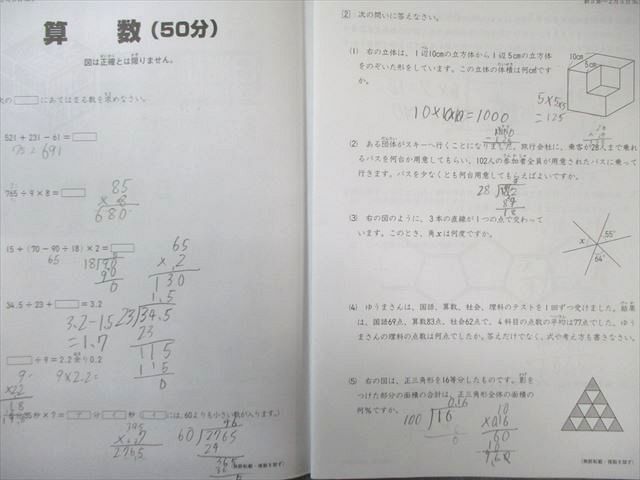 算 数 (50分)
図は正確とは限りません。
次の□にあてはまる数を求めなさい。
521 + 231 − 61 = □
691
765 ÷ 9 × 8 = □
85
× 8
680
15 + (70 − 90 ÷ 18) × 2 = □
65
18)90
90
0
65
× 2
130
34.5 ÷ 23 + □ = 3.2
3.2 − 1.5
= 1.7
1.5
23)34.5
23
115
115
0
□ ÷ 9 = 2.2余り0.2
9×2.2=
35秒 × 7 = □分□秒 (□には、60よりも小さい数が入ります。)
(無断転載・複製を禁ず)
(2) 次の問いに答えなさい。
(1) 右の立体は、1辺10cmの立方体から1辺5cmの立方体
をのぞいた形をしています。この立体の体積は何cm³で
すか。
10cm
5cm
10×10×10=1000
5×5×5
=125
(2) ある団体がスキーへ行くことになりました。旅行会社に、乗客が28人まで乗れ
るバスを何台か用意してもらい、102人の参加者全員が用意されたバスに乗って
行きます。バスを少なくとも何台用意してもらえばよいですか。
(3) 右の図のように、3本の直線が1つの点で交わって
います。このとき、角xは何度ですか。
x
55°
64°
(4) ゆうまさんは、国語、算数、社会、理科のテストを1回ずつ受けました。結果
は、国語69点、算数83点、社会62点で、4科目の点数の平均は77点でした。ゆう
まさんの理科の点数は何点でしたか。答えだけでなく、式や考え方も書きなさい。
(5) 右の図は、正三角形を16等分したものです。影を
つけた部分の面積の合計は、正三角形全体の面積の
何%ですか。
0.16
100)16
(無断転載・複製を禁ず)